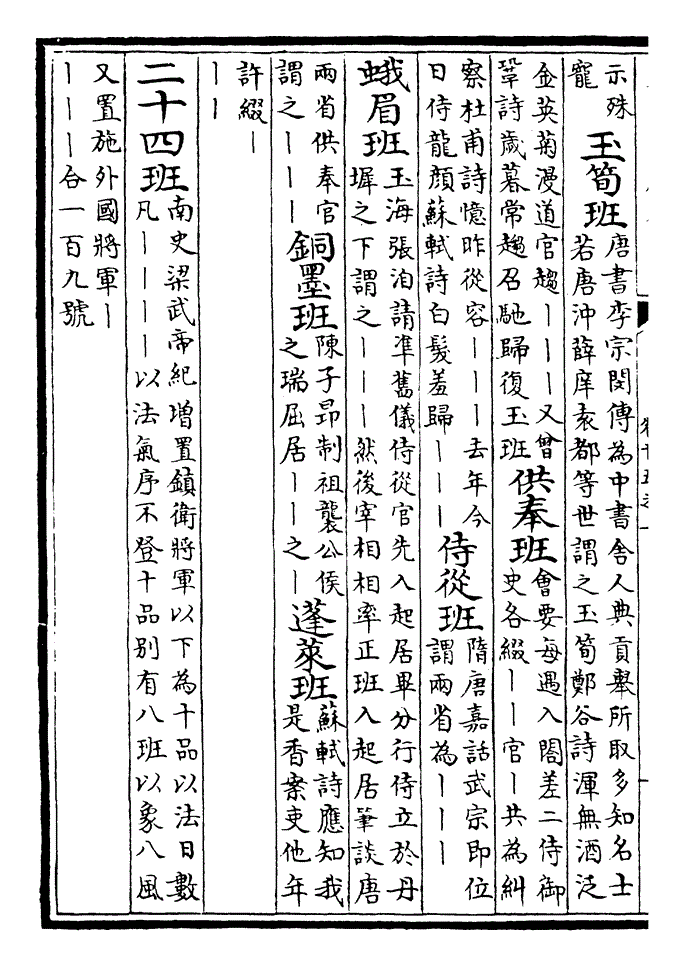 示殊
寵
玉筍班
唐書李宗閔傳為中書舍人典貢舉所取多知名士
若唐沖薛庠袁都等世謂之玉筍鄭谷詩渾無酒泛
金英菊漫道官趨丨丨丨又曾
鞏詩歲暮常趨召馳歸復玉班
供奉班
會要每遇入閤差二侍御
史各綴丨丨官丨共為糾
察杜甫詩憶昨從容丨丨丨去年今
日侍龍顏蘇軾詩白髮羞歸丨丨丨
侍從班
隋唐嘉話武宗即位
謂兩省為丨丨丨
蛾眉班
玉海張洎請準舊儀侍從官先入起居畢分行侍立於丹
墀之下謂之丨丨丨然後宰相相率正班入起居筆談唐
兩省供奉官
謂之丨丨丨
銅墨班
陳子昂制祖襲公侯
之瑞屈居丨丨之丨
蓬萊班
蘇軾詩應知我
是香案吏他年
許綴丨
丨丨
二十四班
南史梁武帝紀增置鎮衛將軍以下為十品以法日數
凡丨丨丨丨以法氣序不登十品別有八班以象八風
又置施外國將軍丨
丨丨丨合一百九號